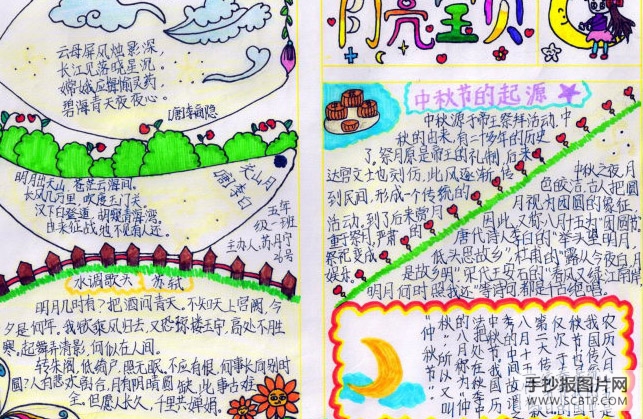 云母屏风烛影深,
长江见落晓星沉。
嫦娥应悔偷灵药
碧海青天夜夜心。
(唐)李商隐
关山月
(唐)李白
明月出天山,苍茫云海间。
长风几万里,吹度玉门关。
汉下白登道,胡窥青海湾。
由来征战地,不见有人还。
五年
级一班
主办人:苏丹宁
26号
水调歌头 苏轼
明月几时有?把酒问青天,不知天上宫阙,今
夕是何年。我欲乘风归去,又恐琼楼玉宇,高处不胜
寒,起舞弄清影,何似在人间。
转朱阁,低绮户,照无眠,不应有恨,何事长向别时
圆?人有悲欢离合,月有阴晴圆缺,此事古难
全,但愿人长久,千里共婵娟。
月亮宝贝
中秋节的起源
中秋源于帝王祭拜活动,中
秋的由来,有二千多年的历史
了,祭月原是帝王的礼制,后来
达官文士也刻仿,此风逐渐传
到民间,形成一个传统的
活动,到了后来赏月
重于祭月,严肃的
祭祀变成
娱乐。
中秋之夜,月
色皎洁,古人把圆
月视为团圆的象征
因此,又称八月十五为“团圆节”
唐代诗人李白的“举头望明月,
低头思故乡”,杜甫的“露从今夜白,月
是故乡明”宋代王安石的“春风又绿江南岸
明月何时照我还”等诗句都是千古绝唱。
手抄报图片网
www.SCBTP.com